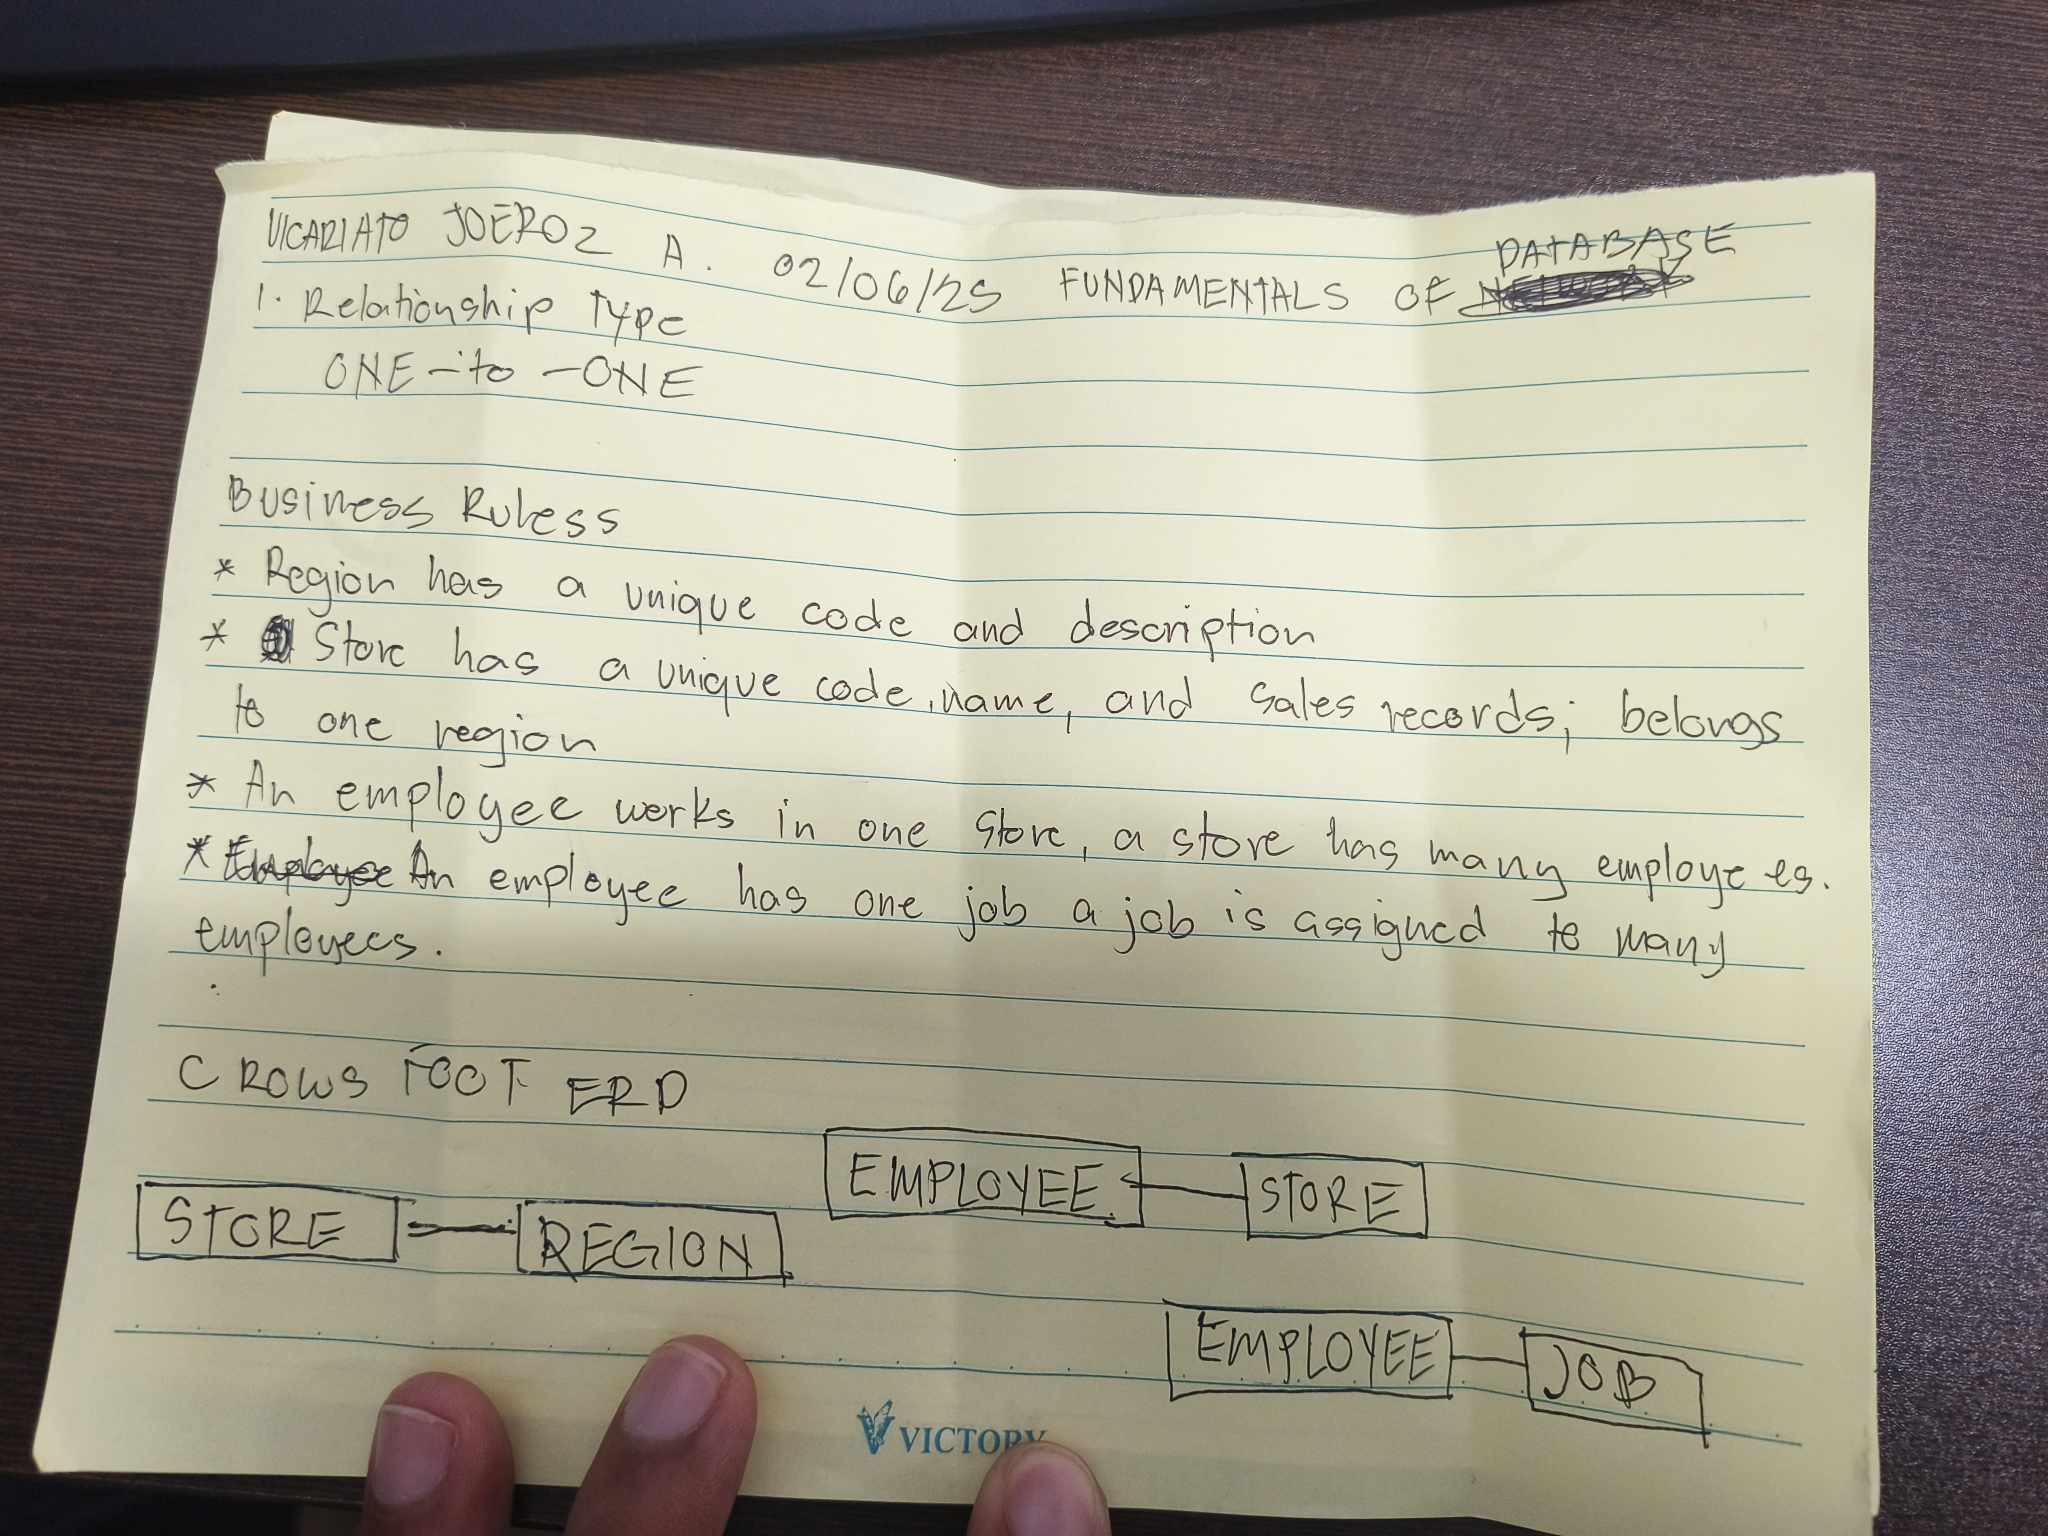 VICARIATO JOEROZ A. 02/06/25 FUNDAMENTALS OF DATABASE
1. Relationship Type
ONE-to-ONE
Business Ruless
* Region has a unique code and description
* Store has a unique code, name, and sales records; belongs
to one region
* An employee works in one store, a store has many employees.
* Employee An employee has one job a job is assigned to many
employees.
CROWS FOOT ERD
EMPLOYEE STORE
STORE REGION
EMPLOYEE JOB
VICTORY